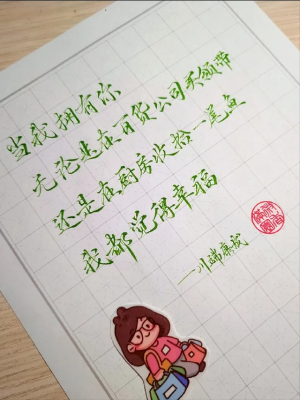 当我拥有你
无论是在百货公司买领带
还是在厨房收拾一尾鱼
我都觉得幸福
——川端康成